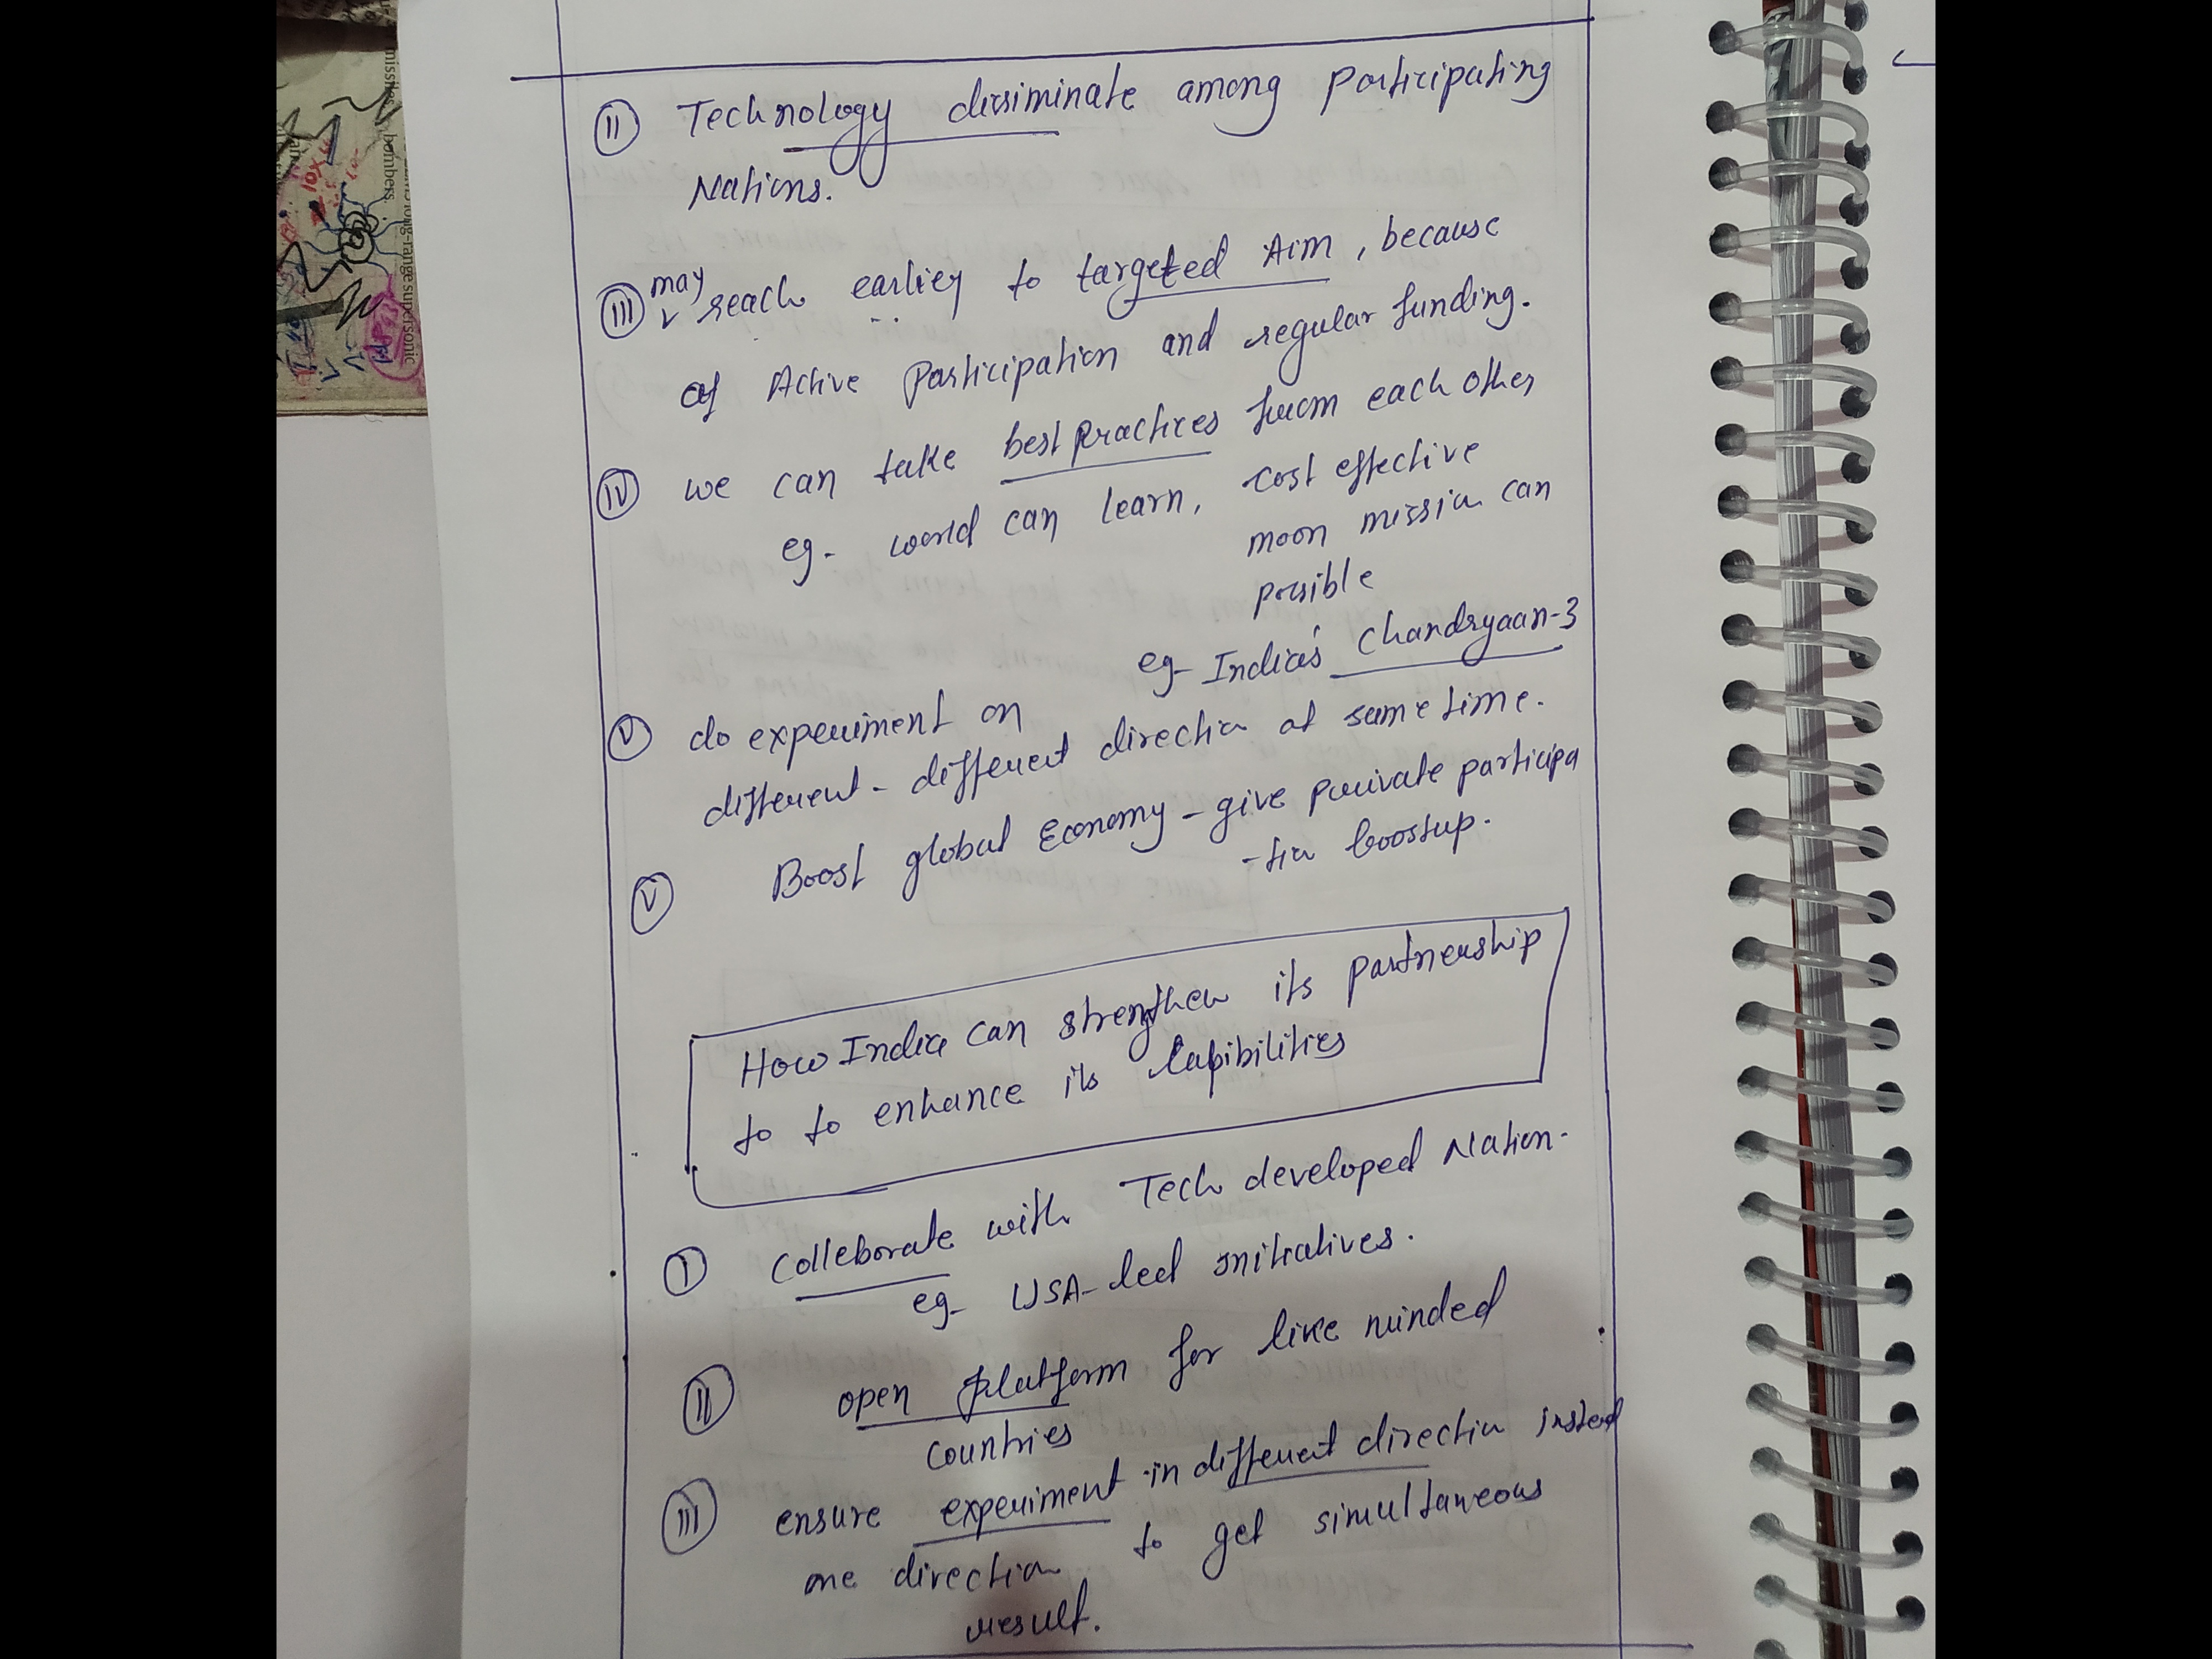 (II) Technology dissiminate among participating
Nations.
(III) may reach earlier to targeted Aim, because
of Active Participation and regular funding.
(IV) we can take best practices from each other
eg- world can learn, cost effective
moon mission can
possible
eg- India's Chandryaan-3
(V) do experiment on
different-different direction at same time.
(V) Boost global Economy - give private participa
-tion boostup.
How India can strengthen its partnership
to to enhance its Capibilities
(I) Colleborate with Tech developed Nation.
eg- USA-led Initiatives.
(II) open platform for like minded
countries
(III) ensure experiment in different direction insted
one direction to get simultaneous
result.
missiles
bombers
long-range supersonic
10x